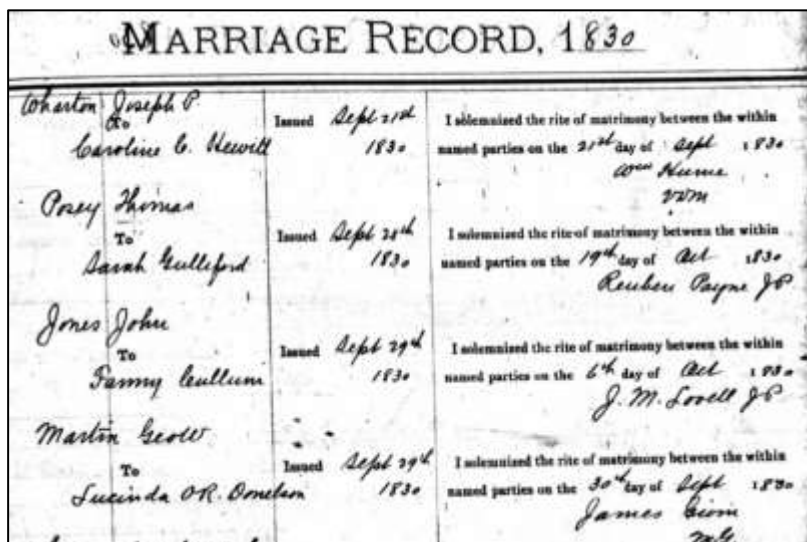 MARRIAGE RECORD, 1830
Wharton Joseph P.
To
Caroline C. Hewill
Issued Sept 21st
1830
I solemnized the rite of matrimony between the within
named parties on the 21st day of Sept 1830
Wm Hume
VDM
Posey Thomas
To
Sarah Gulleford
Issued Sept 28th
1830
I solemnized the rite of matrimony between the within
named parties on the 19th day of Oct 1830
Reuben Payne JP
Jones John
To
Fanny Cullum
Issued Sept 29th
1830
I solemnized the rite of matrimony between the within
named parties on the 6th day of Oct 1830
J. M. Lovell JP
Martin Geo W.
To
Lucinda OR. Donelson
Issued Sept 29th
1830
I solemnized the rite of matrimony between the within
named parties on the 30th day of Sept 1830
James
MG